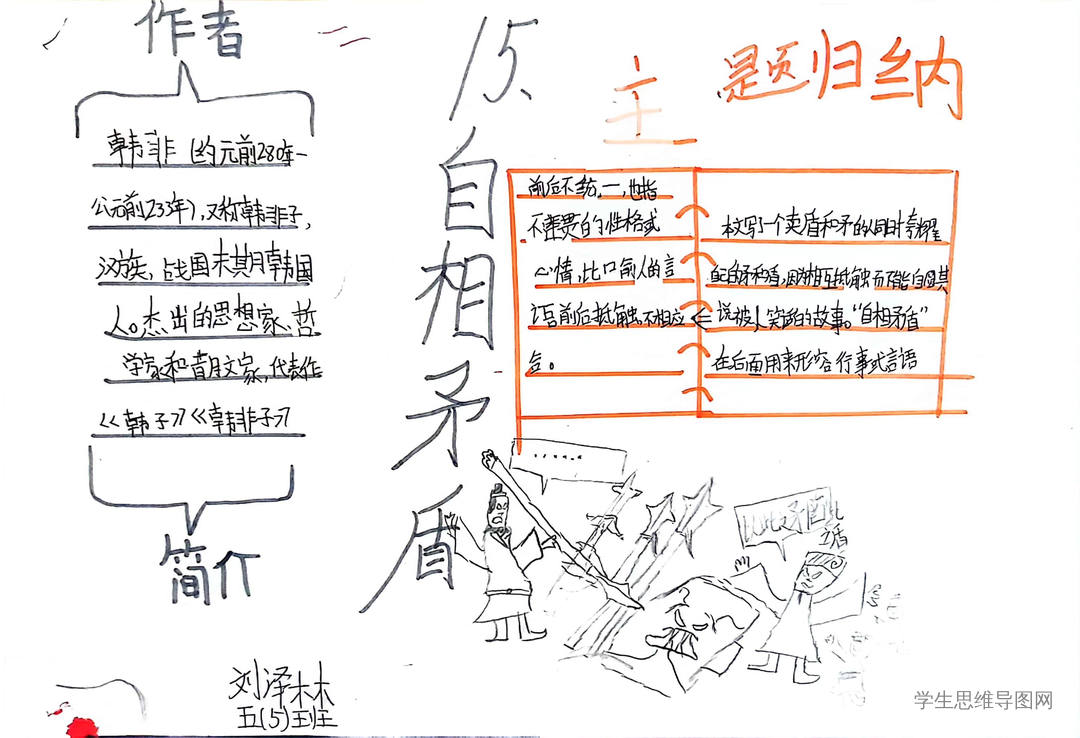 作者
韩非（约元前280年-
公元前233年），又称韩非子，
汉族，战国末其月韩国
人。杰出的思想家、哲
学家和昔攵文家，代表作
《韩子》《韩非子》
简介
15、
自相矛盾
主题归纳
本文写一个卖盾和矛的人同时夸耀
自己的矛和盾，因为相互抵触而不能自圆其
说被人笑话的故事。“自相矛盾”
在后面用来形容行事或言语
前后不统一，也指
的性格或
心情，比口前人的言
语前后抵触，不相应
合。
......
以此矛
盾
刘泽林
五(5)班
学生思维导图网